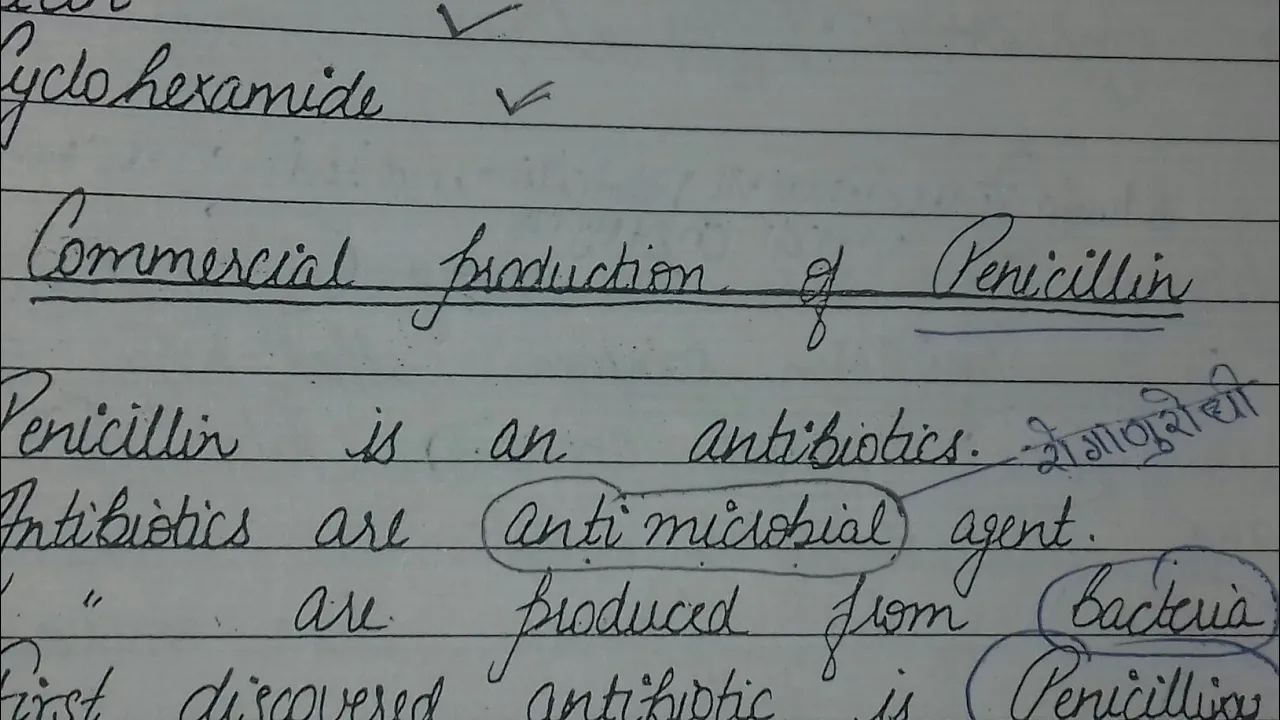 Cyclohexamide
Commercial production of Penicillin
Penicillin is an antibiotics.
रोगाणुरोधी
Antibiotics are antimicrobial agent.
" are produced from Bacteria
First discovered antibiotic is Penicillin